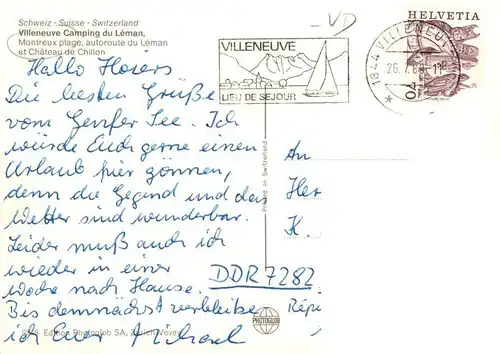 Schweiz - Suisse - Switzerland
Villeneuve Camping du Léman,
Montreux plage, autoroute du Léman
et Château de Chillon
VD
VILLENEUVE
LIEU DE SEJOUR
1844 VILLENEUVE
HELVETIA
Hallo
Die besten Grüße
vom Genfer See. Ich
würde Euch gerne einen
Urlaub hier gönnen,
denn die Gegend und das
Wetter sind wunderbar.
Leider muß auch ich
wieder in einer
Woche nach Hause.
Bis demnächst verbleibe
ich Euer Michael
Printed in Switzerland
An
Her
K.
DDR 7282
Répu
PHOTOGLOB
Edition Photoglob SA, Zürich/Vevey